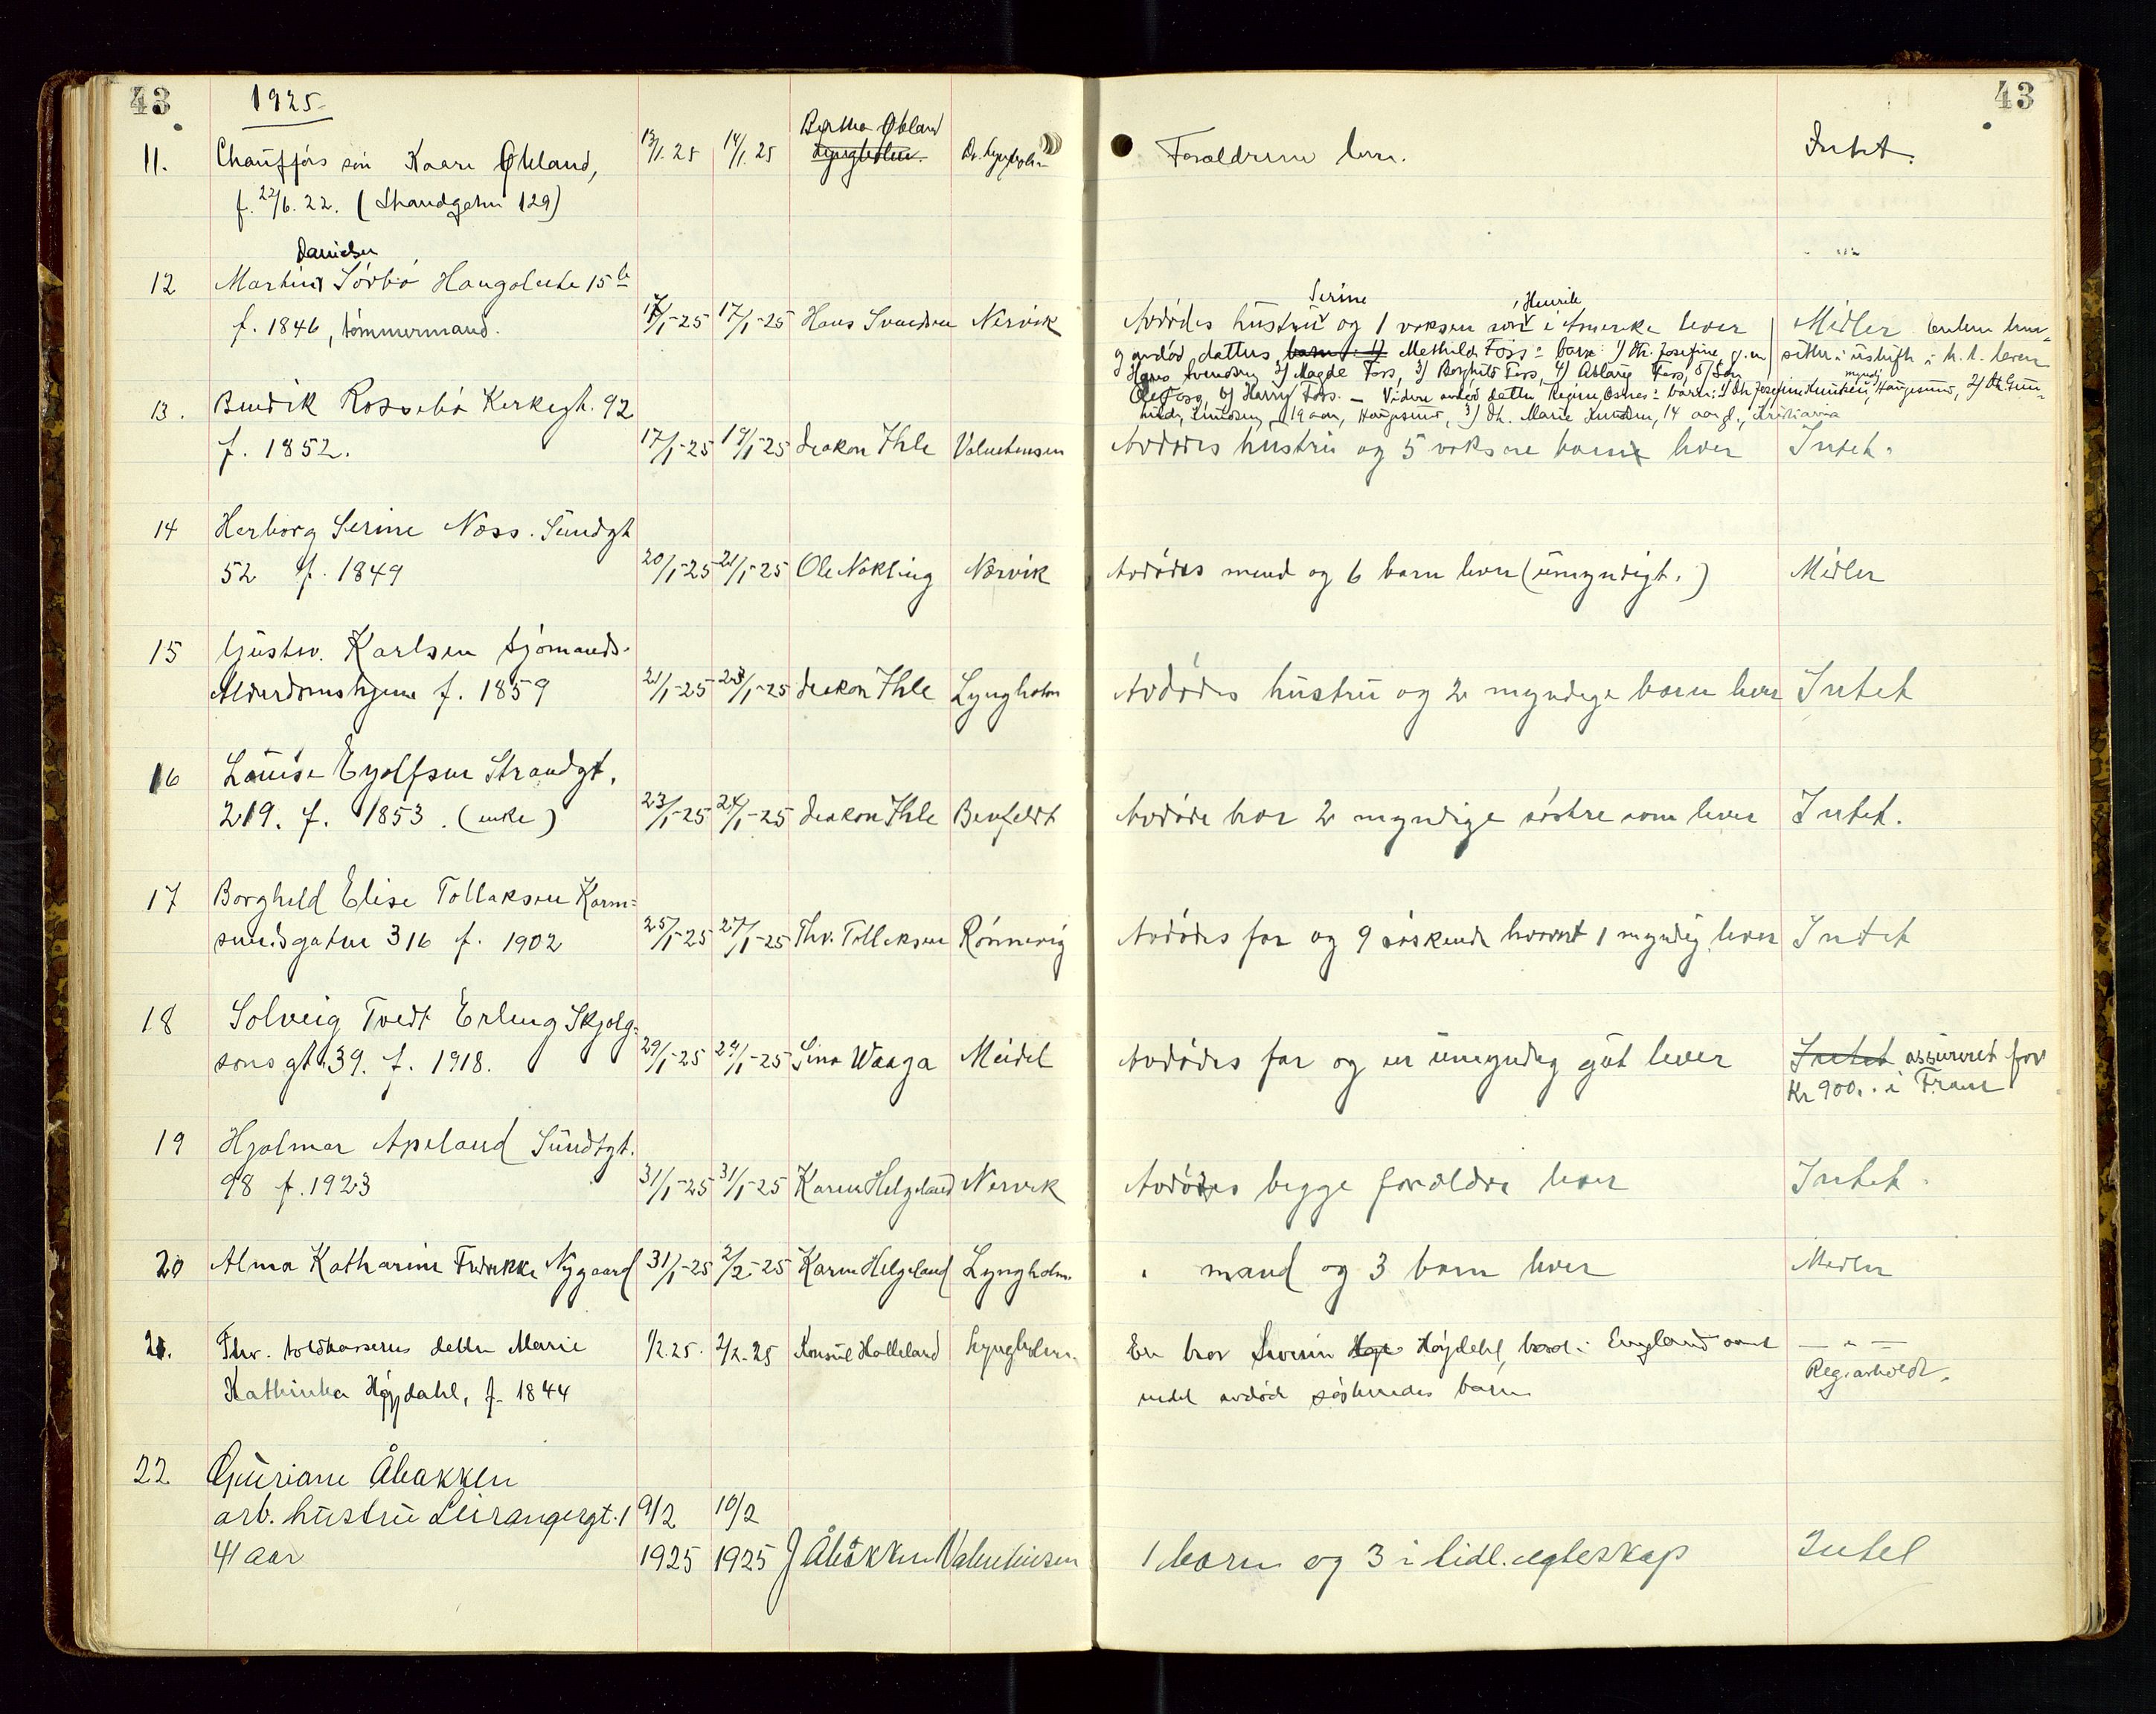 43
1925
43
11. Chaufførs søn Kaare Økland, 13/1. 25 14/1. 25 Bertha Økland Lyngholm. Dr. Lyngholm Forældrene lever. Intet.
f. 22/6. 22. (Strandgaten 129)
Danielsen
12 Martin Sörbö Haugaleite 15 b
f. 1846, tömmermand. 17/1-25 17/1-25 Hans Svendsen Nervik Avdödes hustru Serine og 1 voksen sön, Henrik i Amerika lever Midler
og avdöd datters barn: 1) Mathilde Foss: barn: 1) Fr. Josefine g. m. sitter i uskifte
Hans Svendsen 2) Magda Foss, 3) Borghild Foss, 4) Aslaug Foss, 5) Søn
Ole Foss, 6) Harry Foss. — Videre avdöd datter Regine Østnes: barn: 1) Haugesund, 2)
19 aar, Haugesund, 3) Marie Knudsen, 14 aar g., Kristiania
13. Bendik Rossebö Kirkegt. 92
f. 1852. 17/1-25 19/1-25 diakon Ihle Valentinsen Avdödes hustru og 5 voksne barn lever Intet.
14 Herborg Serine Næss. Sundgt
52 f. 1849 20/1-25 21/1-25 Ole Nökling Nervik Avdödes mand og 6 barn lever (umyndigt.) Midler
15 Gustav. Karlsen Sjömands-
Alderdomshjem f. 1859 21/1-25 23/1-25 diakon Ihle Lyngholm Avdödes hustru og 2 myndige barn lever Intet
16 Louise Eyolfsen Strandgt.
219. f. 1853. (enke) 23/1-25 24/1-25 diakon Ihle Benfeldt Avdöde har 2 myndige söstre som lever Intet.
17 Borghild Elise Tollaksen Karm=
sundsgaten 316 f. 1902 25/1-25 27/1-25 Thv. Tollaksen Rönnevig Avdödes far og 9 söskende hvorav 1 myndig lever Intet
18 Solveig Tvedt Erling Skjalg=
sons gt. 39. f. 1918. 29/1-25 29/1-25 Sina Waaga Meidel Avdödes far og en umyndig gut lever Intet assureret for
Kr 900.- i Fram
19 Hjalmar Apeland Sundtgt.
98 f. 1923 31/1-25 31/1-25 Karen Helgeland Nervik Avdödes begge forældre lever Intet.
20 Alma Katharine Fredrikke Nygaard 31/1-25 2/2-25 Karen Helgeland Lyngholm. " mand og 3 barn lever Midler
21. Fhv. toldkasserers datter Marie 1/2. 25. 2/2. 25 Konsul Halleland Lyngholm. En bror Severin Høydahl, bosat i England samt — " —
Kathinka Høydahl, f. 1844 endel avdöde söskendes barn Reg. avholdt.
22 Guriane Åbakken
arb. hustru Leirangergt. 1 9/2 10/2
41 aar 1925 1925 J Åbakken Valentinsen 1 barn og 3 i tidl. egteskap Intet